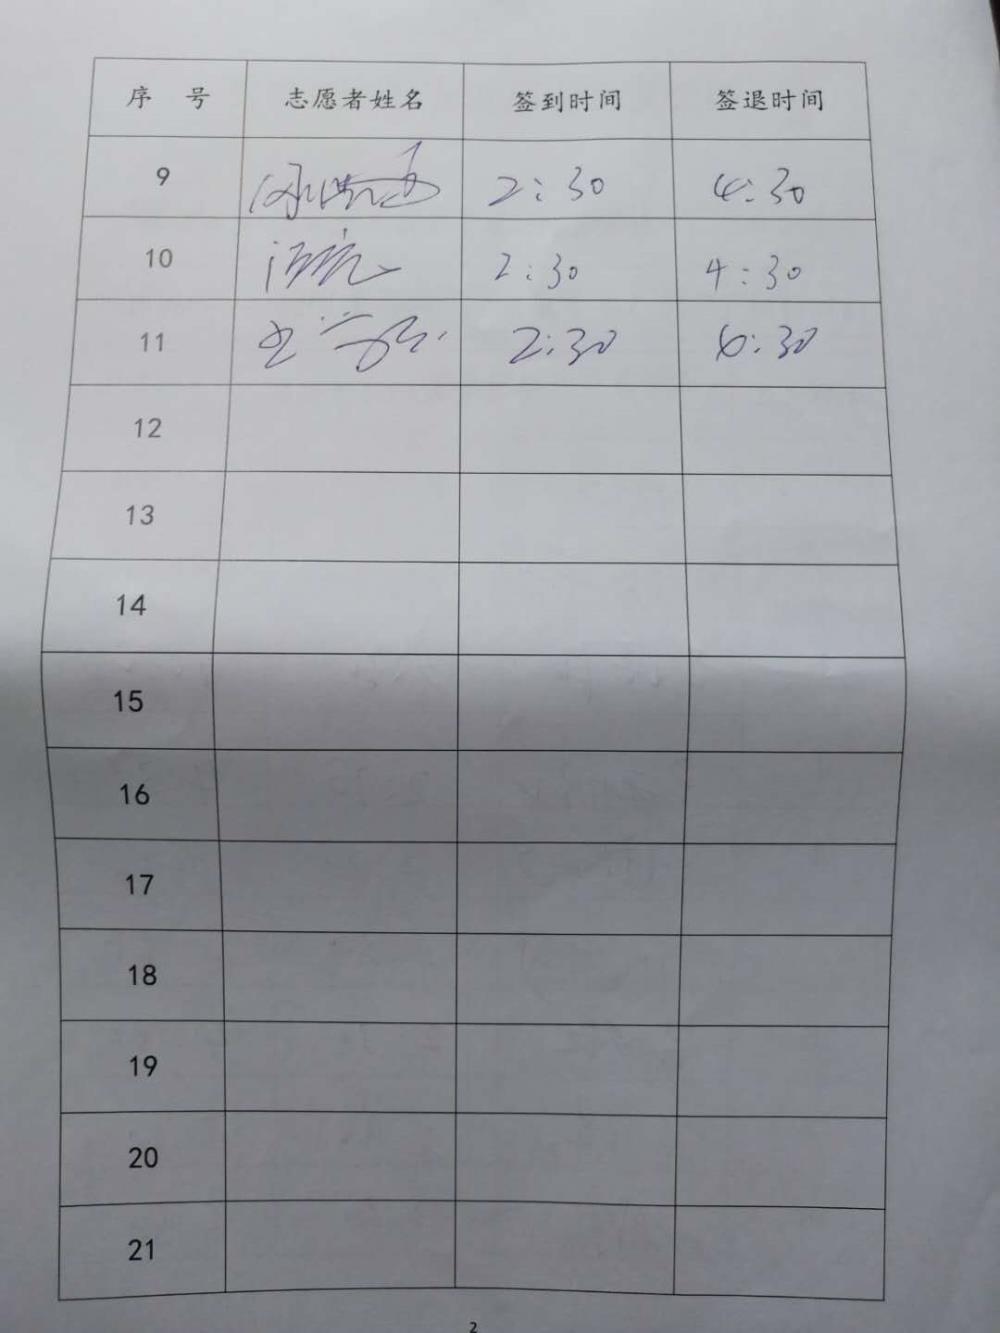 序 号 志愿者姓名 签到时间 签退时间
9 2:30 4:30
10 2:30 4:30
11 2:30 4:30
12
13
14
15
16
17
18
19
20
21
2